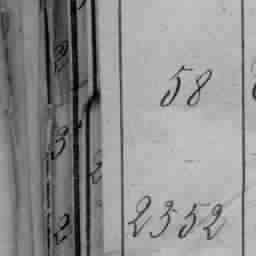 2
58
3
2
2 2352